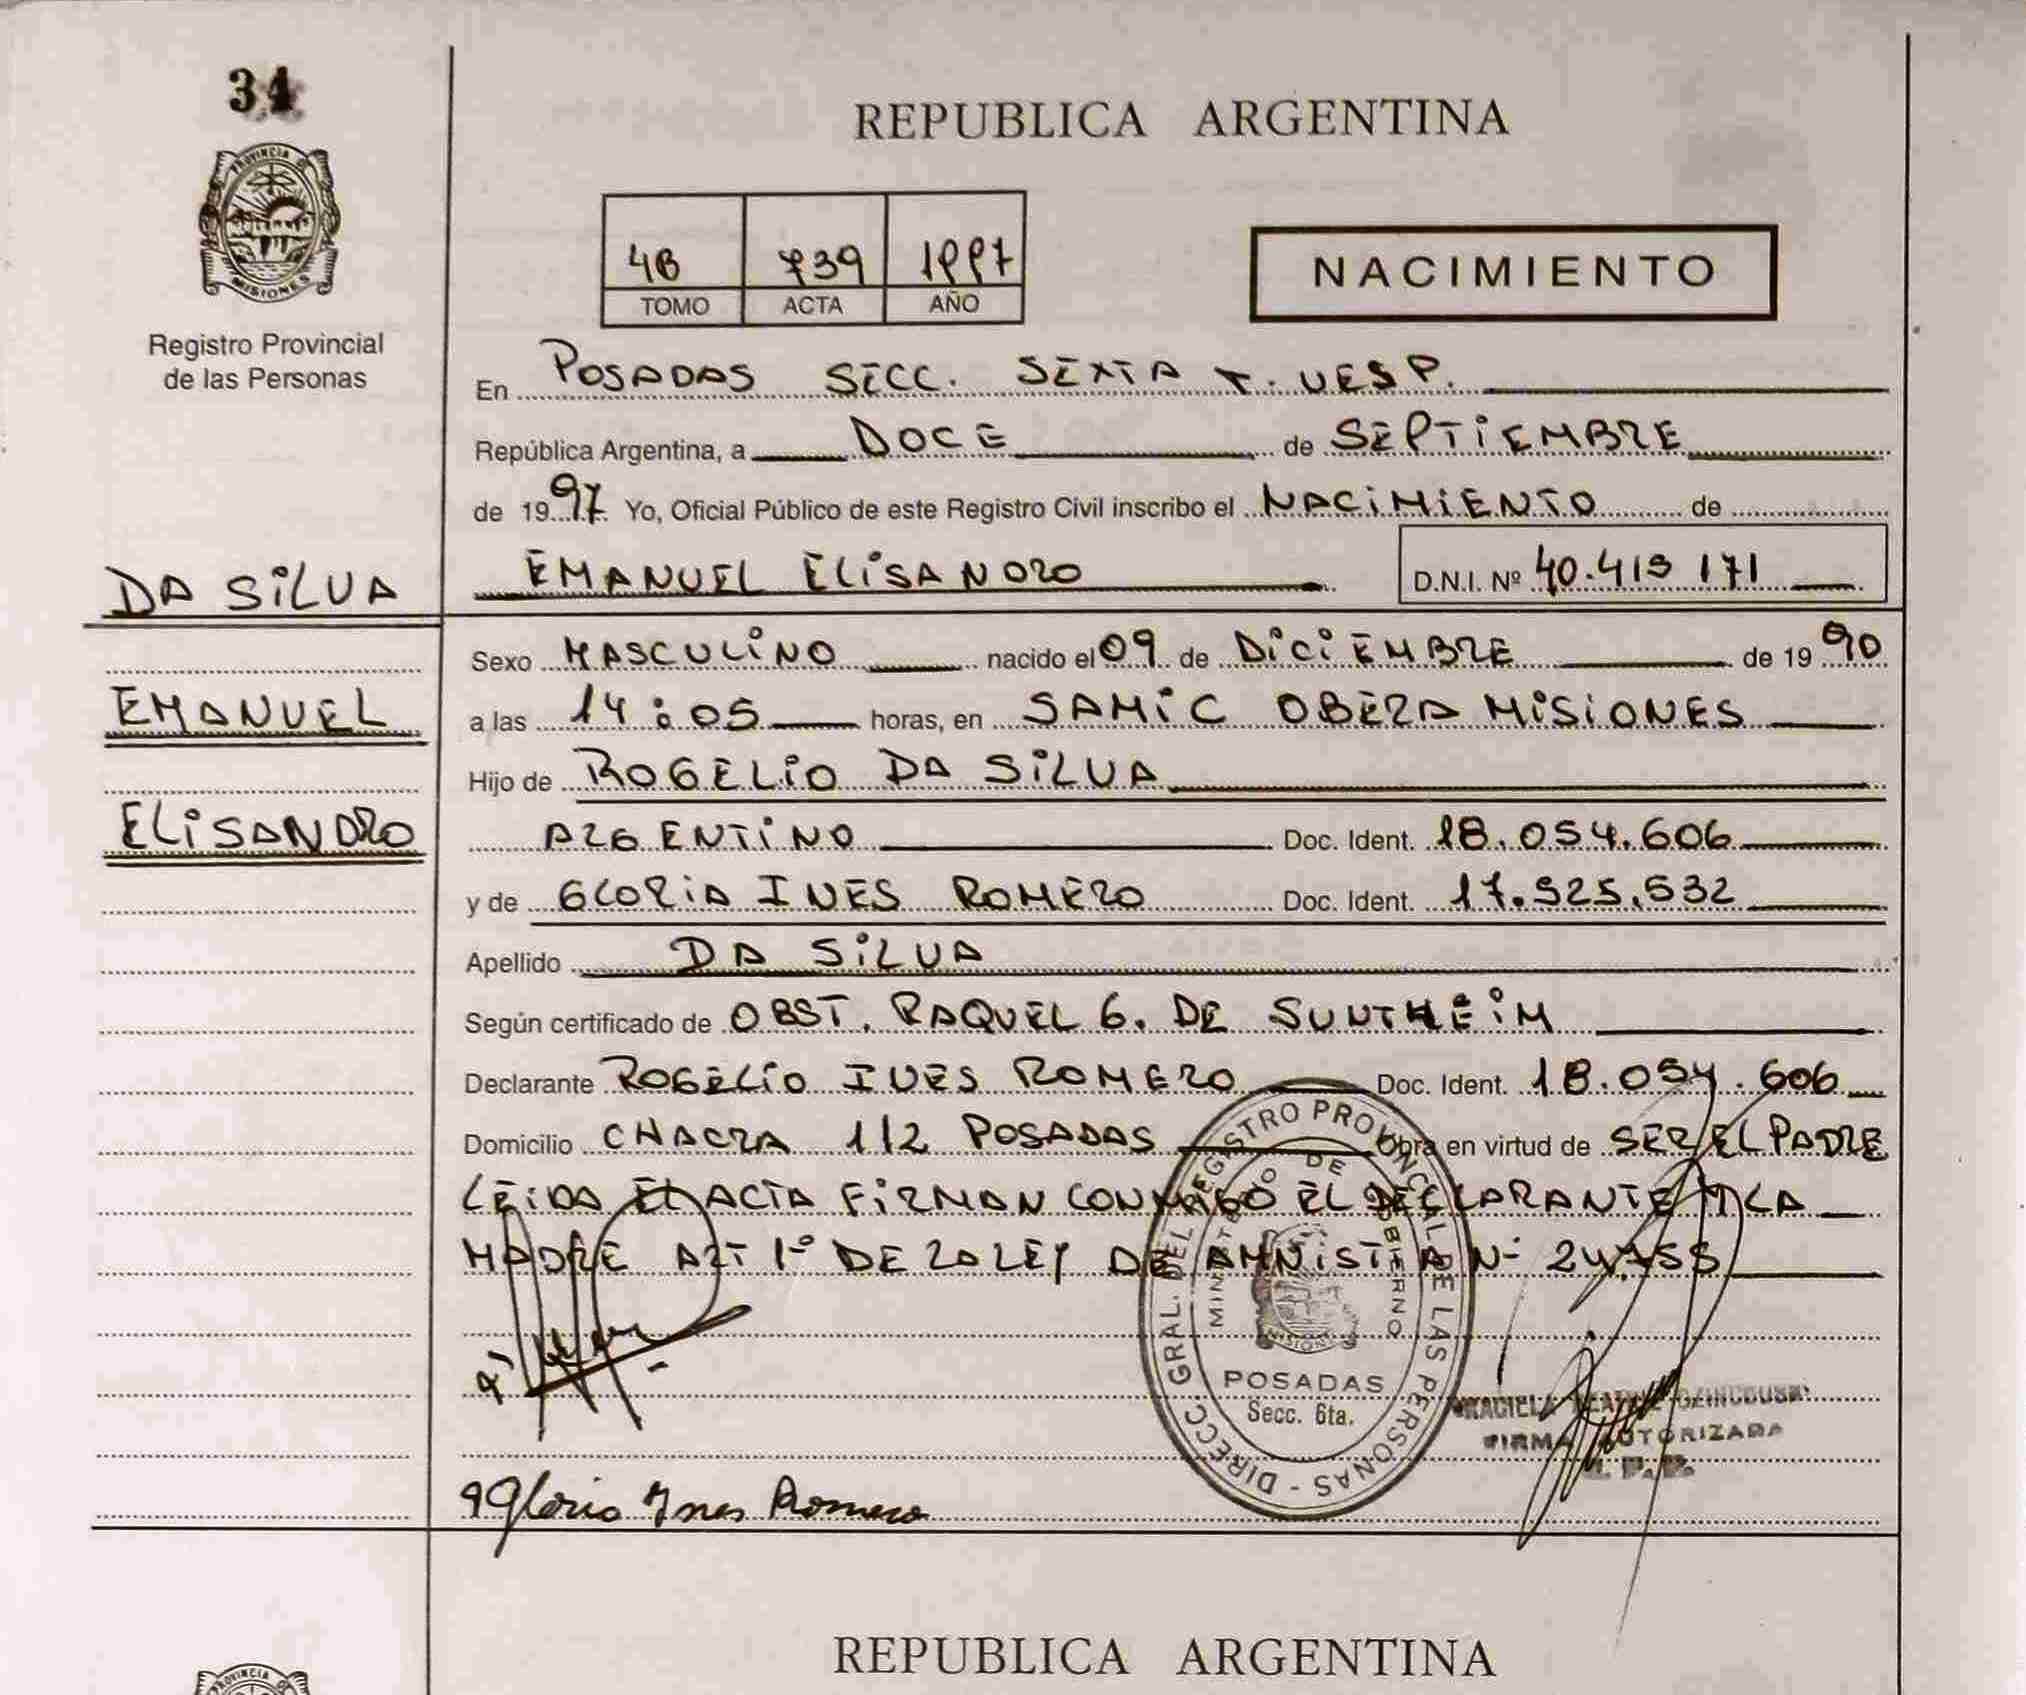 34
PROVINCIA DE
MISIONES
Registro Provincial
de las Personas
REPUBLICA ARGENTINA
4B 739 1997
TOMO ACTA AÑO
NACIMIENTO
En POSADAS SECC. SEXTA T. VESP.
República Argentina, a DOCE de SEPTIEMBRE
de 1997 Yo, Oficial Público de este Registro Civil inscribo el NACIMIENTO de
EMANUEL ELISANDRO D.N.I. Nº 40.419 171
DA SILVA
EMANUEL
ELISANDRO
Sexo MASCULINO nacido el 09 de DICIEMBRE de 1990
a las 14:05 horas, en SAMIC OBERA MISIONES
Hijo de ROGELIO DA SILVA
ARGENTINO Doc. Ident. 18.054.606
y de GLORIA INES ROMERO Doc. Ident. 17.925.532
Apellido DA SILVA
Según certificado de OBST. RAQUEL G. DE SUNTHEIM
Declarante ROGELIO INES ROMERO Doc. Ident. 18.054.606
Domicilio CHACRA 112 POSADAS Obra en virtud de SER EL PADRE
LEIDA EL ACTA FIRMAN CONMIGO EL DECLARANTE Y LA
MADRE ART 1º DE LA LEY DE AMNISTIA Nº 24.755
DIRECC. GRAL. DEL REGISTRO PROVINCIAL DE LAS PERSONAS
MINISTERIO DE GOBIERNO
MISIONES
POSADAS
Secc. 6ta.
GRACIELA BEATRIZ
FIRMA AUTORIZADA
Gloria Ines Romero
REPUBLICA ARGENTINA
PROVINCIA